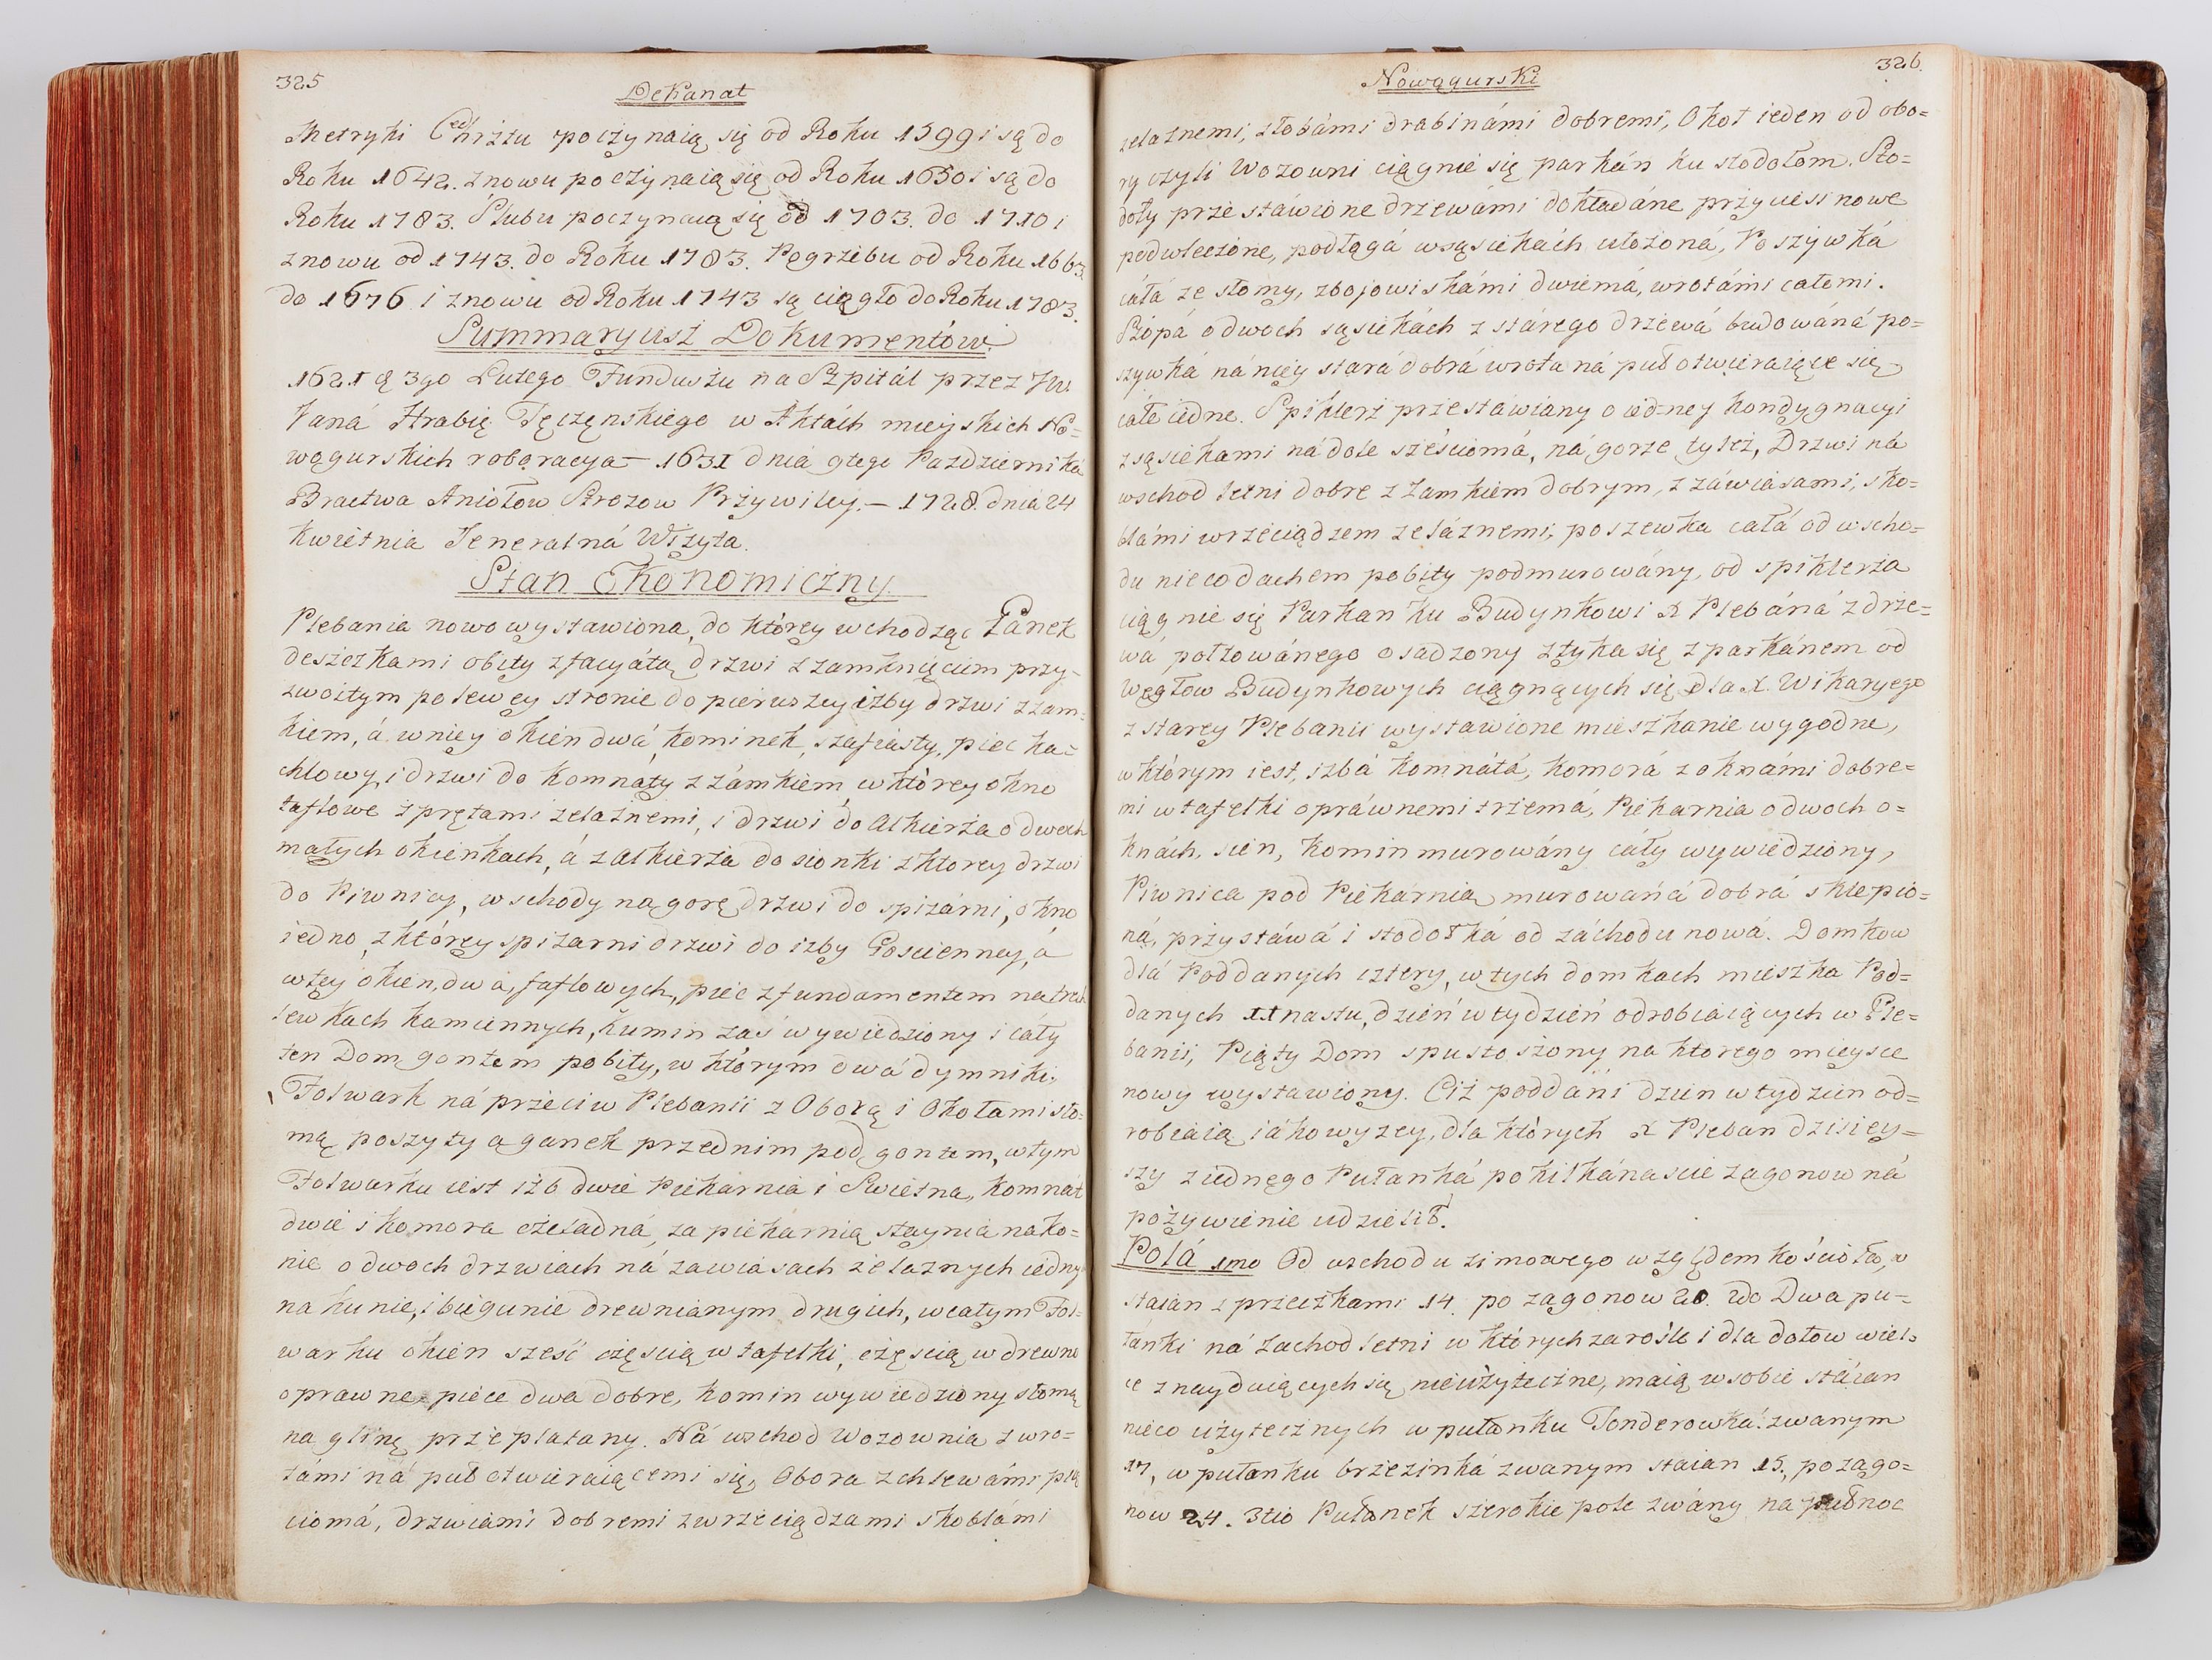 325
Dekanat
Metryki Chrztu poczynaią się od Roku 1599 i są do
Roku 1642. znowu poczynaią się od Roku 1650 i są do
Roku 1783. Slubu poczynaią się od 1703. do 1710 i
znowu od 1743. do Roku 1783. Pogrzebu od Roku 1663
do 1676 i znowu od Roku 1743 są ciągło do Roku 1783.
Summaryusz Dokumentów
1621 3go Lutego Funduszu na Szpitál przez JW.
Janá Hrabię Tęczęnskiego w Aktách mieyskich No=
wogurskich roboracya — 1631 dnia 9tego Pazdzierniká
Bractwa Aniołow Strozow Przywiley. — 1728. dnia 24
Kwietnia Jeneralná Wizyta.
Stan Ekonomiczny.
Plebania nowo wystawiona, do którey wchodząc Ganek
deszczkami obity z facyátą drzwi z zamknięciem przy-
zwoitym po lewey stronie do pierwszey izby drzwi z zam=
kiem, á w niey okien dwá, kominek szafiasty, piec ka=
chlowy, i drzwi do Komnáty z zámkiem, w którey okno
taflowe z prętami zelaznemi, i drzwi do Alkierza o dwoch
małych okienkach, á z Alkierza do sionki z ktorey drzwi
do Piwnicy, wschody na gorę drzwi do spizárni, okno
iedno, z którey spizarni drzwi do izby Gosciennej, á
w tey okien, dwa, taflowych, piec z fundamentem na trech
lewkach kamiennych, kumin zaś wywiedziony i cáły
ten Dom gontem pobity, w którym dwá dymniki.
Folwark ná przeciw Plebanii z Oborą i Okołami sło=
mą poszyty a ganek przednim pod gontem, w tym
Folwarku iest izb dwie Piekarnia i Swietna, Komnat
dwie i Komora czeladná, za piekárnią staynia na ko=
nie o dwoch drzwiach ná zawiasach zelaznych iedny
na kunie, i biegunie drewnianym drugich, w całym Fol=
warku okien szesć częścią w tafelki, częścią w drewno
oprawne, piece dwa dobre, komin wywiedziony słomą
na glinę przeplatany. Ná wschod Wozownia z wro=
támi ná puł otwieraiącemi się, Obora z chlewámi pię
ciomá, drzwiami dobremi z wrzeciądzami skoblámi
326.
Nowogurski
zelaznemi, złobámi drabinámi dobremi, Okoł ieden od obo=
ry czyli Wozowni ciągnie się parkán ku stodołom. Sto=
doły przestáwione drzewámi dokładáne przyciess nowe
podwleczone, podłogá w sąsiekách ułożoná, Poszywká
cáłá ze słomy, z bojowiskámi dwiemá, wrotámi całemi.
Szopá o dwoch sąsiekách z stárego drzewá budowáná po=
szywká ná niey stará dobrá wrota ná puł otwieraiące się
cáłe iedne. Spiklerz przestáwiany o iedney kondygnacyi
z sąsiekami ná dole szesciomá, ná gorze tyleż, Drzwi ná
wschod letni dobre z zamkiem dobrym, z záwiasami, sko=
blámi wrzeciądzem zeláznemi, poszewka cáłá od wscho=
du nieco dachem pobity podmurowány, od spiklerza
ciągnie się Parkan ku Budynkowi X Plebáná z drze=
wá połzowánego osadzony ztyka się z parkánem od
Węgłow Budynkowych ciągnących się dla X. Wikaryego
z starey Plebanii wystawione mieszkanie wygodne,
w którym iest, izbá Komnátá, Komorá z oknámi dobre=
mi w tafelki opráwnemi trzemá, Piekarnia o dwoch o=
knách, sien, komin murowány cáły wywiedziony,
Piwnica pod Piekarnią murowáná dobrá sklepio=
ná, przystáwá i stodołká od záchodu nowá. Domkow
dlá Poddanych cztery, w tych domkach mieszka Pod=
danych XI nastu, dzień w tydzień odrobiaiących w Ple=
banii, Piąty Dom spustoszony na ktorego mieysce
nowy wystawiony. Ciż poddáni dzien w tydzien od=
robiaią iako wyzey, dla których X Pleban dzisiey=
szy z iednego Pułanká po kilkánascie zagonow ná
pożywienie udzielił.
Polá 1mo Od wschodu zimowego względem kościoła, w
staian z przeczkami 14. po zagonow 20. 2do Dwa pu=
łánki ná Zachod letni w których zarośle i dla dołow wiel=
ce znayduiących się nieużyteczne, maią w sobie stáian
nieco użytecznych w pułanku Tonderowká zwanym
17, w pułanku brzezinká zwanym staian 15., po zago=
now 24. 3tio Pułanek szerokie pole zwány na pułnoc